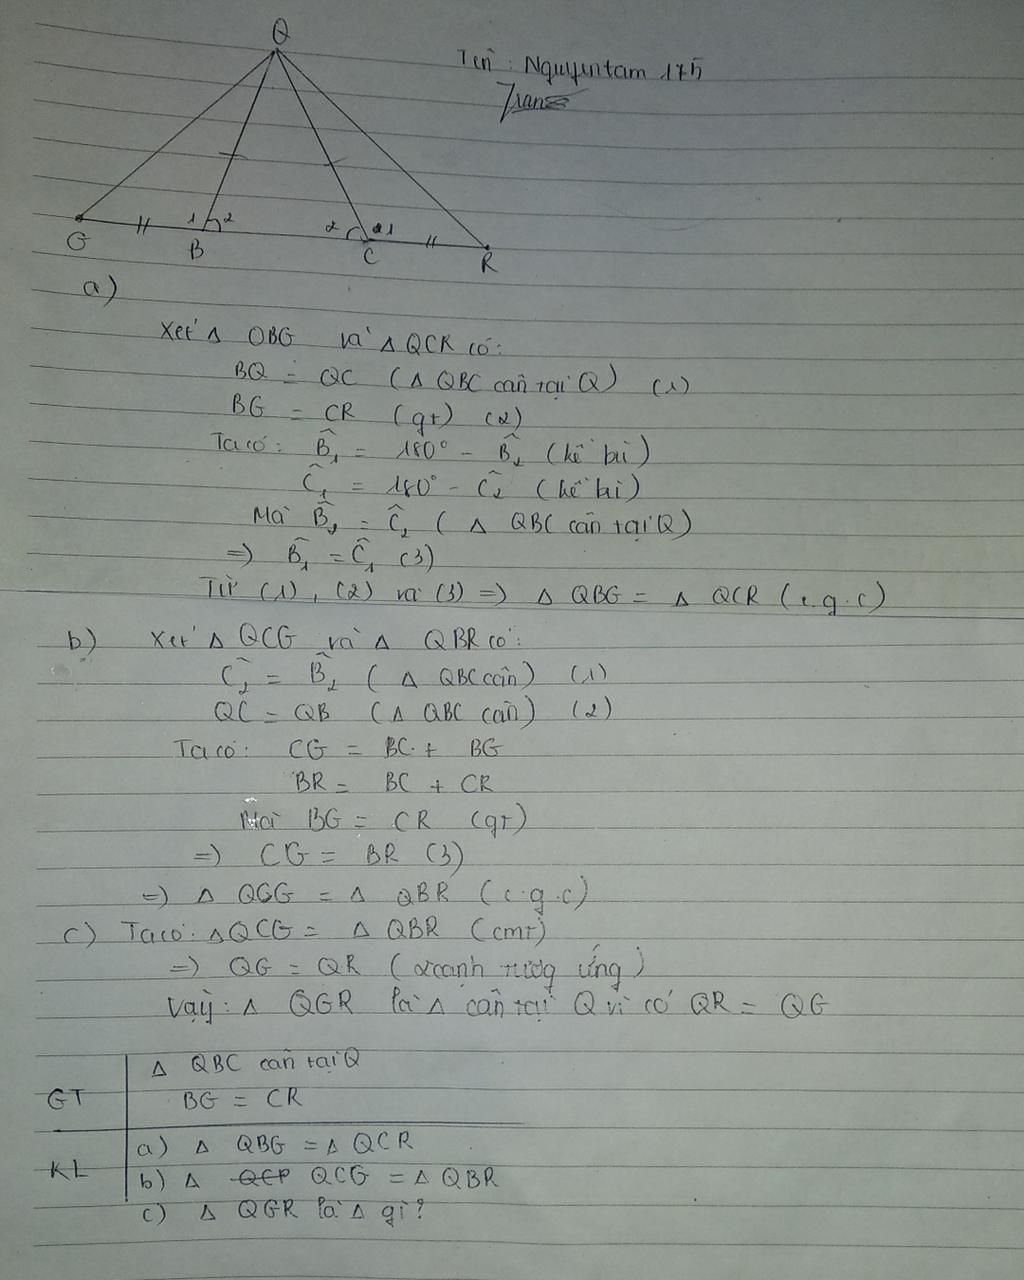 Q
Tên : Nguyentam 175
G
1
2
B
2
1
C
R
a)
Xét Δ OBG và Δ QCR có:
BQ = QC (Δ QBC cân tại Q) (1)
BG = CR (gt) (2)
Ta có: B̂₁ = 180° - B̂₂ (kề bù)
Ĉ₁ = 180° - Ĉ₂ (kề bù)
Mà B̂₂ = Ĉ₂ (Δ QBC cân tại Q)
=> B̂₁ = Ĉ₁ (3)
Từ (1), (2) và (3) => Δ QBG = Δ QCR (c.g.c)
b) Xét Δ QCG và Δ QBR có:
Ĉ₂ = B̂₂ (Δ QBC cân) (1)
QC = QB (Δ QBC cân) (2)
Ta có: CG = BC + BG
BR = BC + CR
Mà BG = CR (gt)
=> CG = BR (3)
=> Δ QGG = Δ QBR (c.g.c)
c) Ta có: Δ QCG = Δ QBR (cmt)
=> QG = QR (2 cạnh tương ứng)
Vậy: Δ QGR là Δ cân tại Q vì có QR = QG
GT
Δ QBC cân tại Q
BG = CR
KL
a) Δ QBG = Δ QCR
b) Δ QCG = Δ QBR
c) Δ QGR là Δ gì?